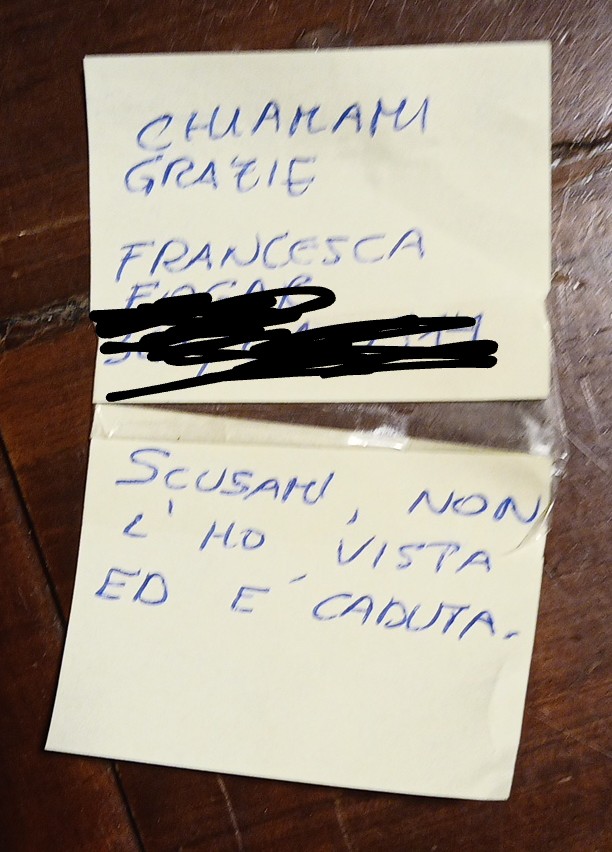 CHIAMAMI
GRAZIE
FRANCESCA
SCUSAMI, NON
L'HO VISTA
ED E' CADUTA.